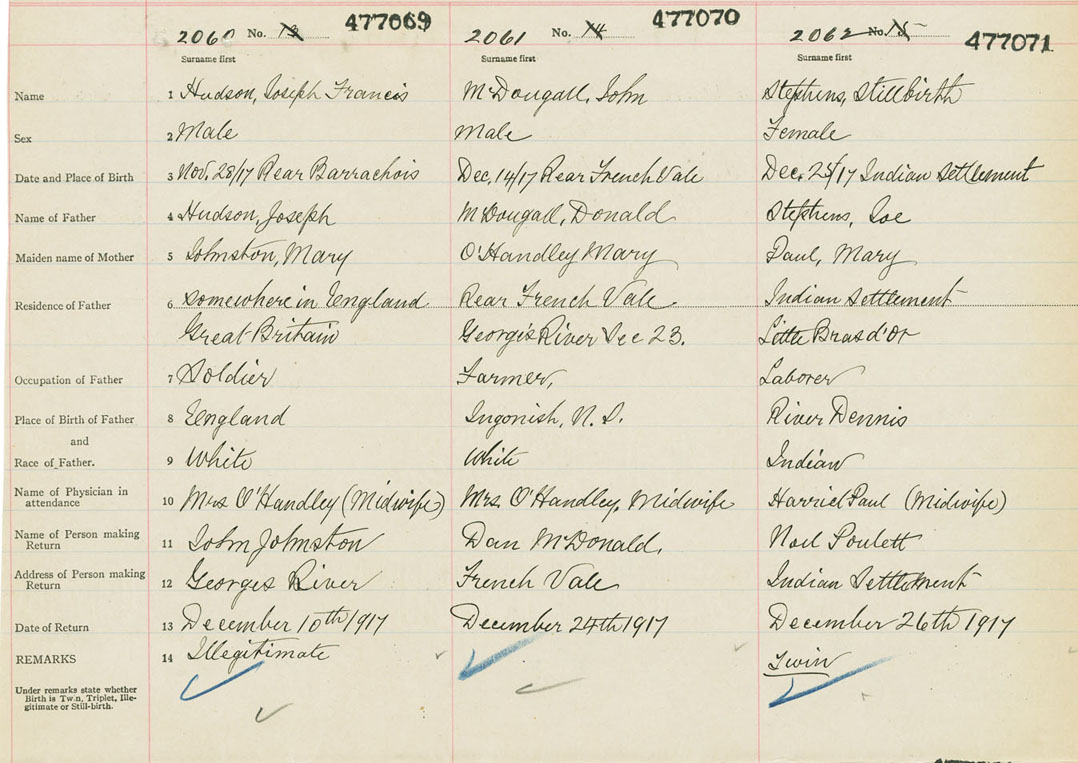 2060 No. 13 477069 2061 No. 14 477070 2062 No. 15 477071
Surname first Surname first Surname first
Name 1 Hudson, Joseph Francis McDougall, John Stephens, Stillbirth
Sex 2 Male Male Female
Date and Place of Birth 3 Nov. 28/17 Rear Barrachois Dec. 14/17 Rear French Vale Dec. 25/17 Indian Settlement
Name of Father 4 Hudson, Joseph McDougall, Donald Stephens, Joe
Maiden name of Mother 5 Johnston, Mary O'Handley Mary Paul, Mary
Residence of Father 6 Somewhere in England Rear French Vale. Indian Settlement
Great Britain Georges River Dec 23. Little Bras d'Or
Occupation of Father 7 Soldier Farmer, Laborer
Place of Birth of Father 8 England Ingonish, N.S. River Dennis
and
Race of Father. 9 White White Indian
Name of Physician in
attendance 10 Mrs O'Handley (Midwife) Mrs. O'Handley, Midwife Harriel Paul (Midwife)
Name of Person making
Return 11 John Johnston Dan McDonald. Noel Poulett
Address of Person making
Return 12 Georges River French Vale Indian Settlement
Date of Return 13 December 10th 1917 December 24th 1917 December 26th 1917
REMARKS 14 Illegitimate Twin
Under remarks state whether
Birth is Twin, Triplet, Ille-
gitimate or Still-birth.